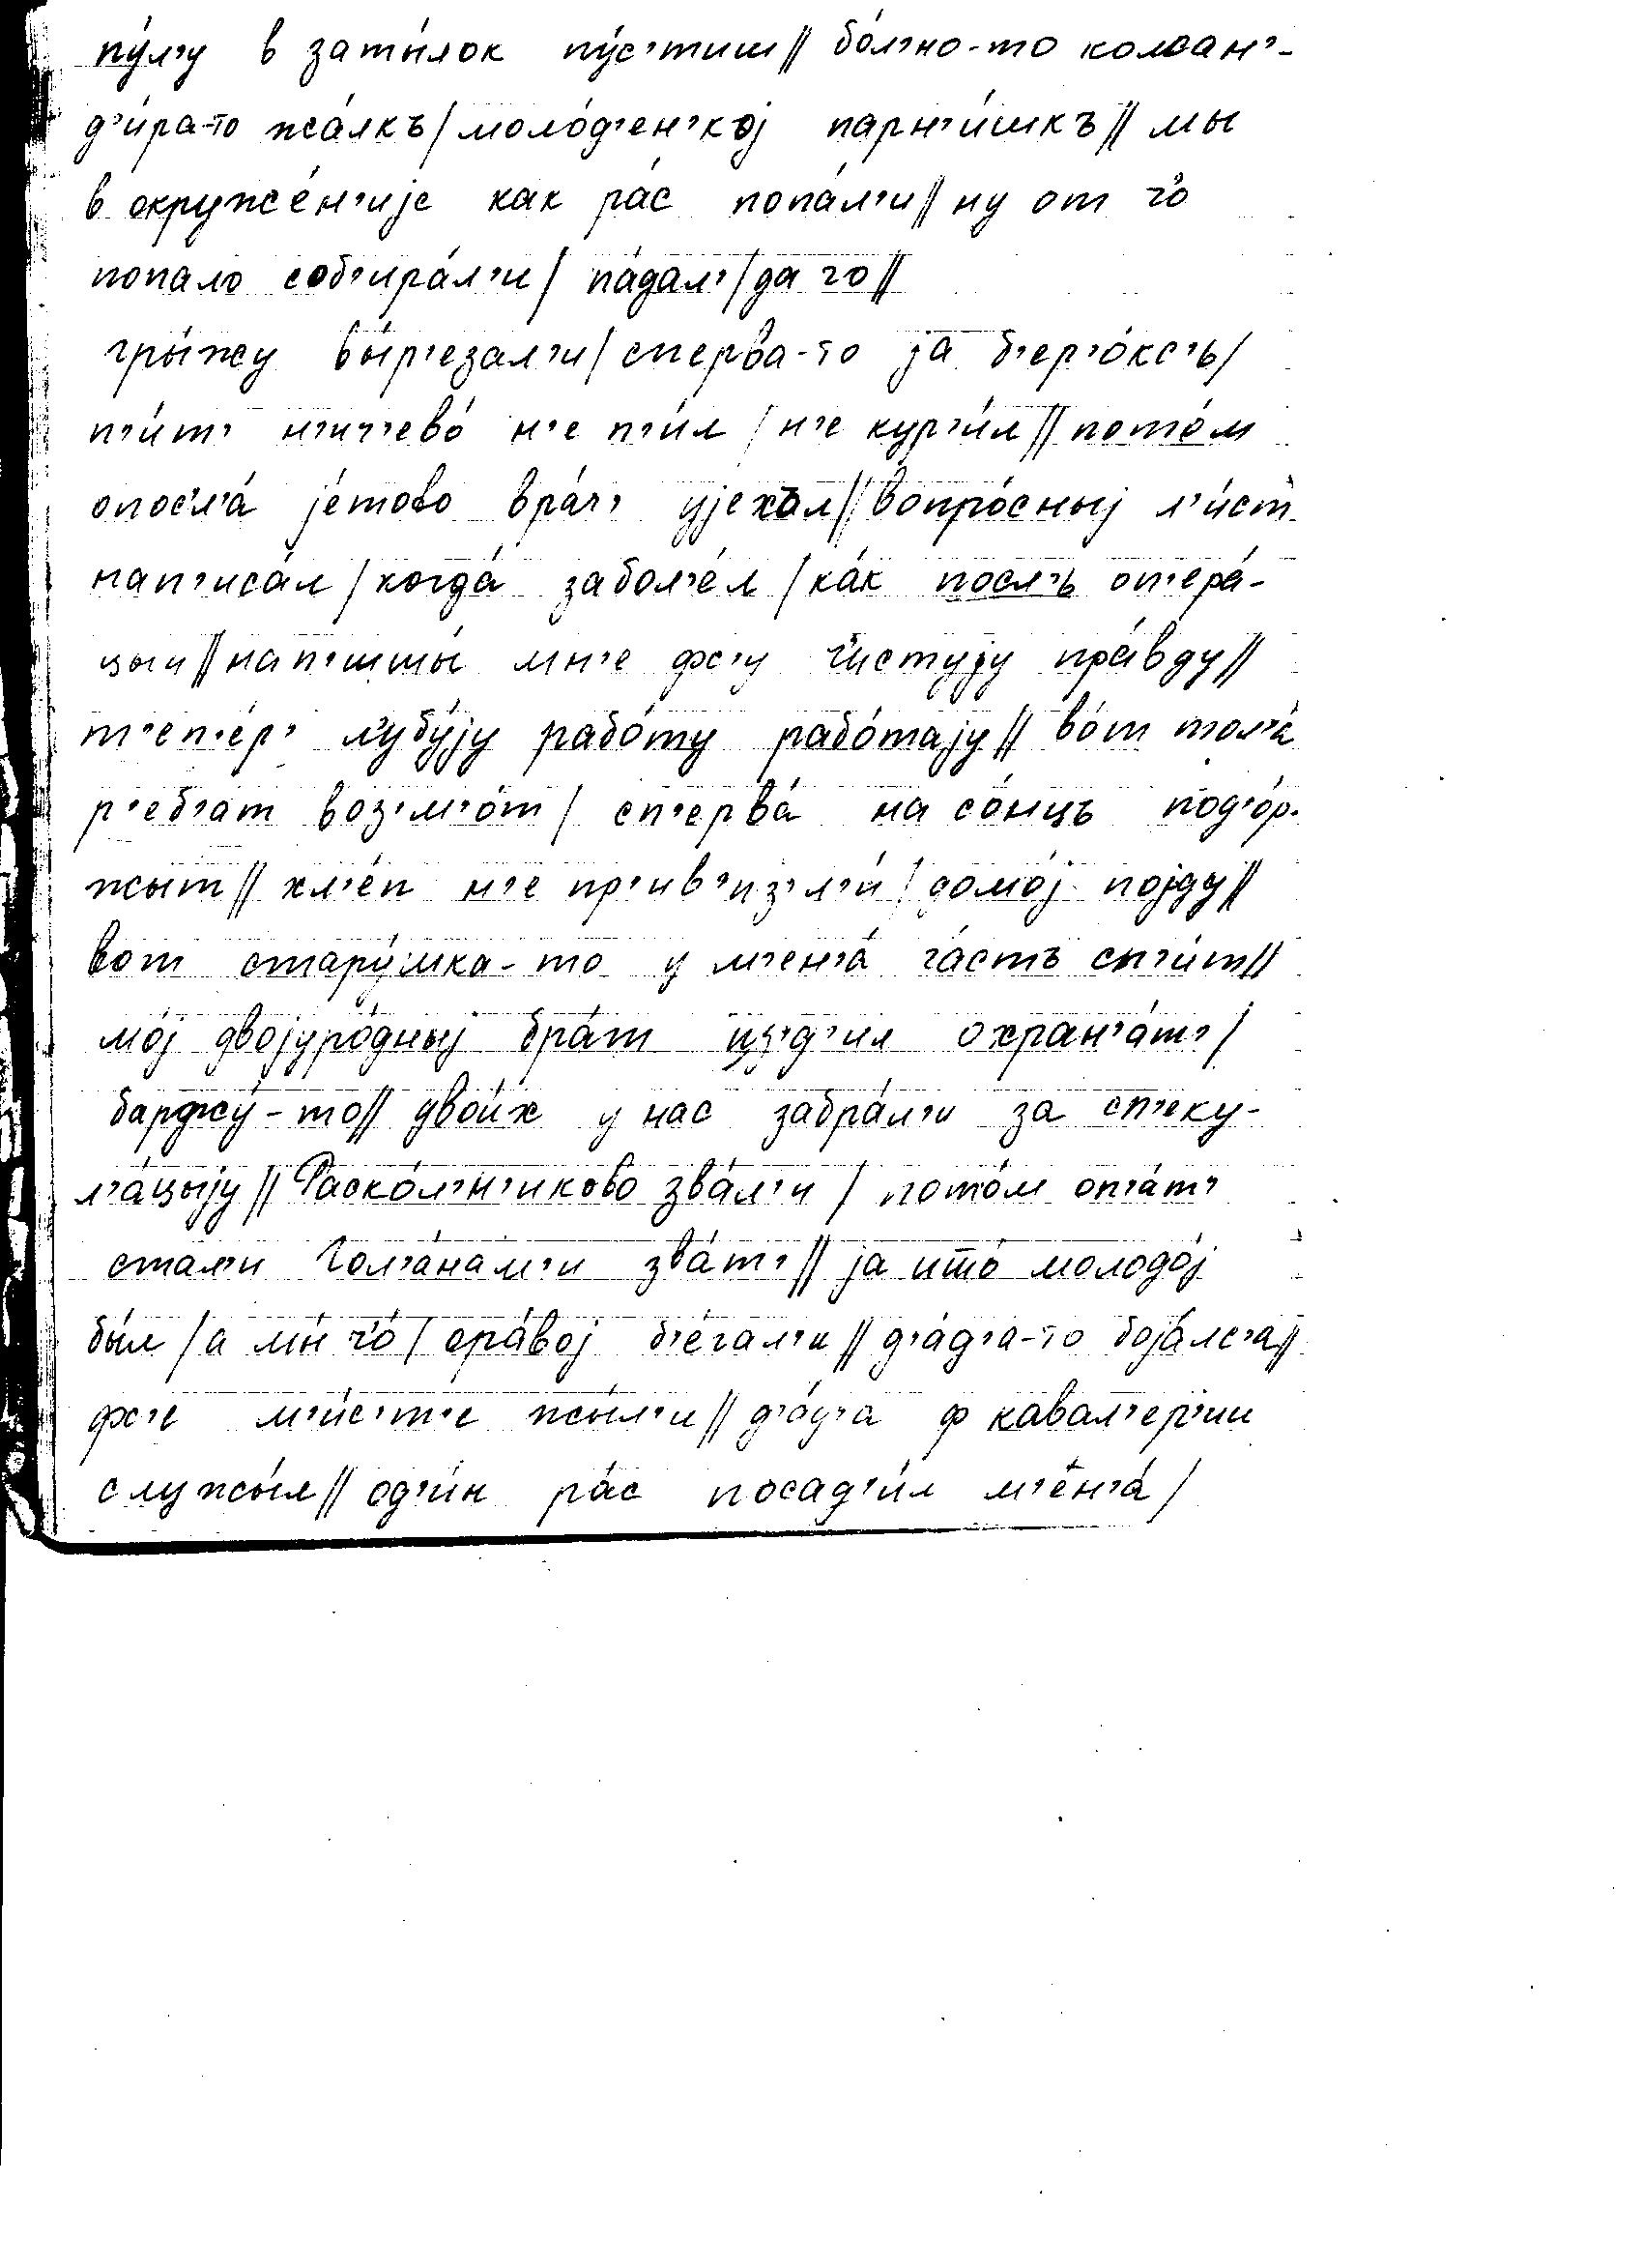 пу́л'у в заты́лок пу́с'тиш// бо́л'но-то коман'-
д'и́ра-то жа́лкъ/ моло́д'ен'кој парн'и́шкъ// мы
в окруже́н'ијe как ра́с попа́л'и// ну от чо́
попало соб'ира́л'и/ па́дал'/ да чо//
гры́жу вы́р'езал'и/ сперва-то ја б'ер'о́кс'ь/
п'и́т' н'ич'ево́ н'е п'и́л /н'е кур'и́л// пото́м
опосл'а́ је́тово вра́ч' ујехал// вопро́сныј л'и́ст
нап'иса́л /когда́ забол'е́л /ка́к посл'ь оп'ера́-
цыи// нап'ишы́ мн'е фс'у чистују пра́вду//
т'еп'е́р' л'убу́ју рабо́ту рабо́тају// во́т тол'а́
р'еб'ат воз'м'о́т/ сп'ерва́ на со́нцъ под'о́р-
жыт// хл'е́п н'е пр'ив'из'л'и́/ домо́ј појду//
вот стару́шка-то у м'ен'а́ ча́стъ сп'и́т//
мо́ј двојуро́дныј бра́т из'д'ил охран'а́т'/
баржу́-то// двои́х у нас забра́л'и за сп'еку-
л'а́цыју// Раско́л'н'иково зва́л'и / пото́м оп'а́т'
стал'и Гол'а́нам'и зва́т'// ја што́ молодо́ј
бы́л /а мы́ чо́/ ора́вој б'е́гал'и// д'а́д'а-то боја́лс'а//
фс'е м'и́с'т'е жы́л'и// д'а́д'а ф кавал'ер'ии
служы́л// од'и́н ра́с посад'и́л м'ен'а́/